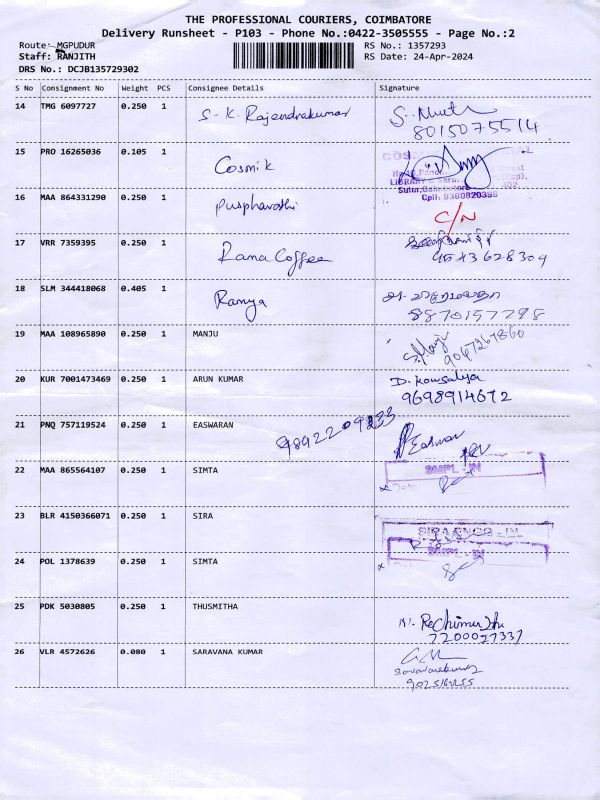 THE PROFESSIONAL COURIERS, COIMBATORE
Delivery Runsheet - P103 - Phone No.:0422-3505555 - Page No.:2
Route: MGPUDUR RS No.: 1357293
Staff: RANJITH RS Date: 24-Apr-2024
DRS No.: DCJB135729302
S No Consignment No Weight PCS Consignee Details Signature
14 TMG 6097727 0.250 1 S-K. Rajendrakumar
8015075514
15 PRO 16265036 0.105 1 Cosmik
LIBRARY
Cell: 9360820398
16 MAA 864331290 0.250 1 Pusphavathi C/N
17 VRR 7359395 0.250 1 Rama Coffee
9543628304
18 SLM 344418068 0.405 1 Ramya
8870157298
19 MAA 108965890 0.250 1 MANJU
9047267860
20 KUR 7001473469 0.250 1 ARUN KUMAR D. Kowsalya
9698914672
21 PNQ 757119524 0.250 1 EASWARAN 9892209233 Easwar
22 MAA 865564107 0.250 1 SIMTA SMPL - IN
23 BLR 4150366071 0.250 1 SIRA
24 POL 1378639 0.250 1 SIMTA SMPL - IN
25 PDK 5030805 0.250 1 THUSMITHA
7200027337
26 VLR 4572626 0.080 1 SARAVANA KUMAR